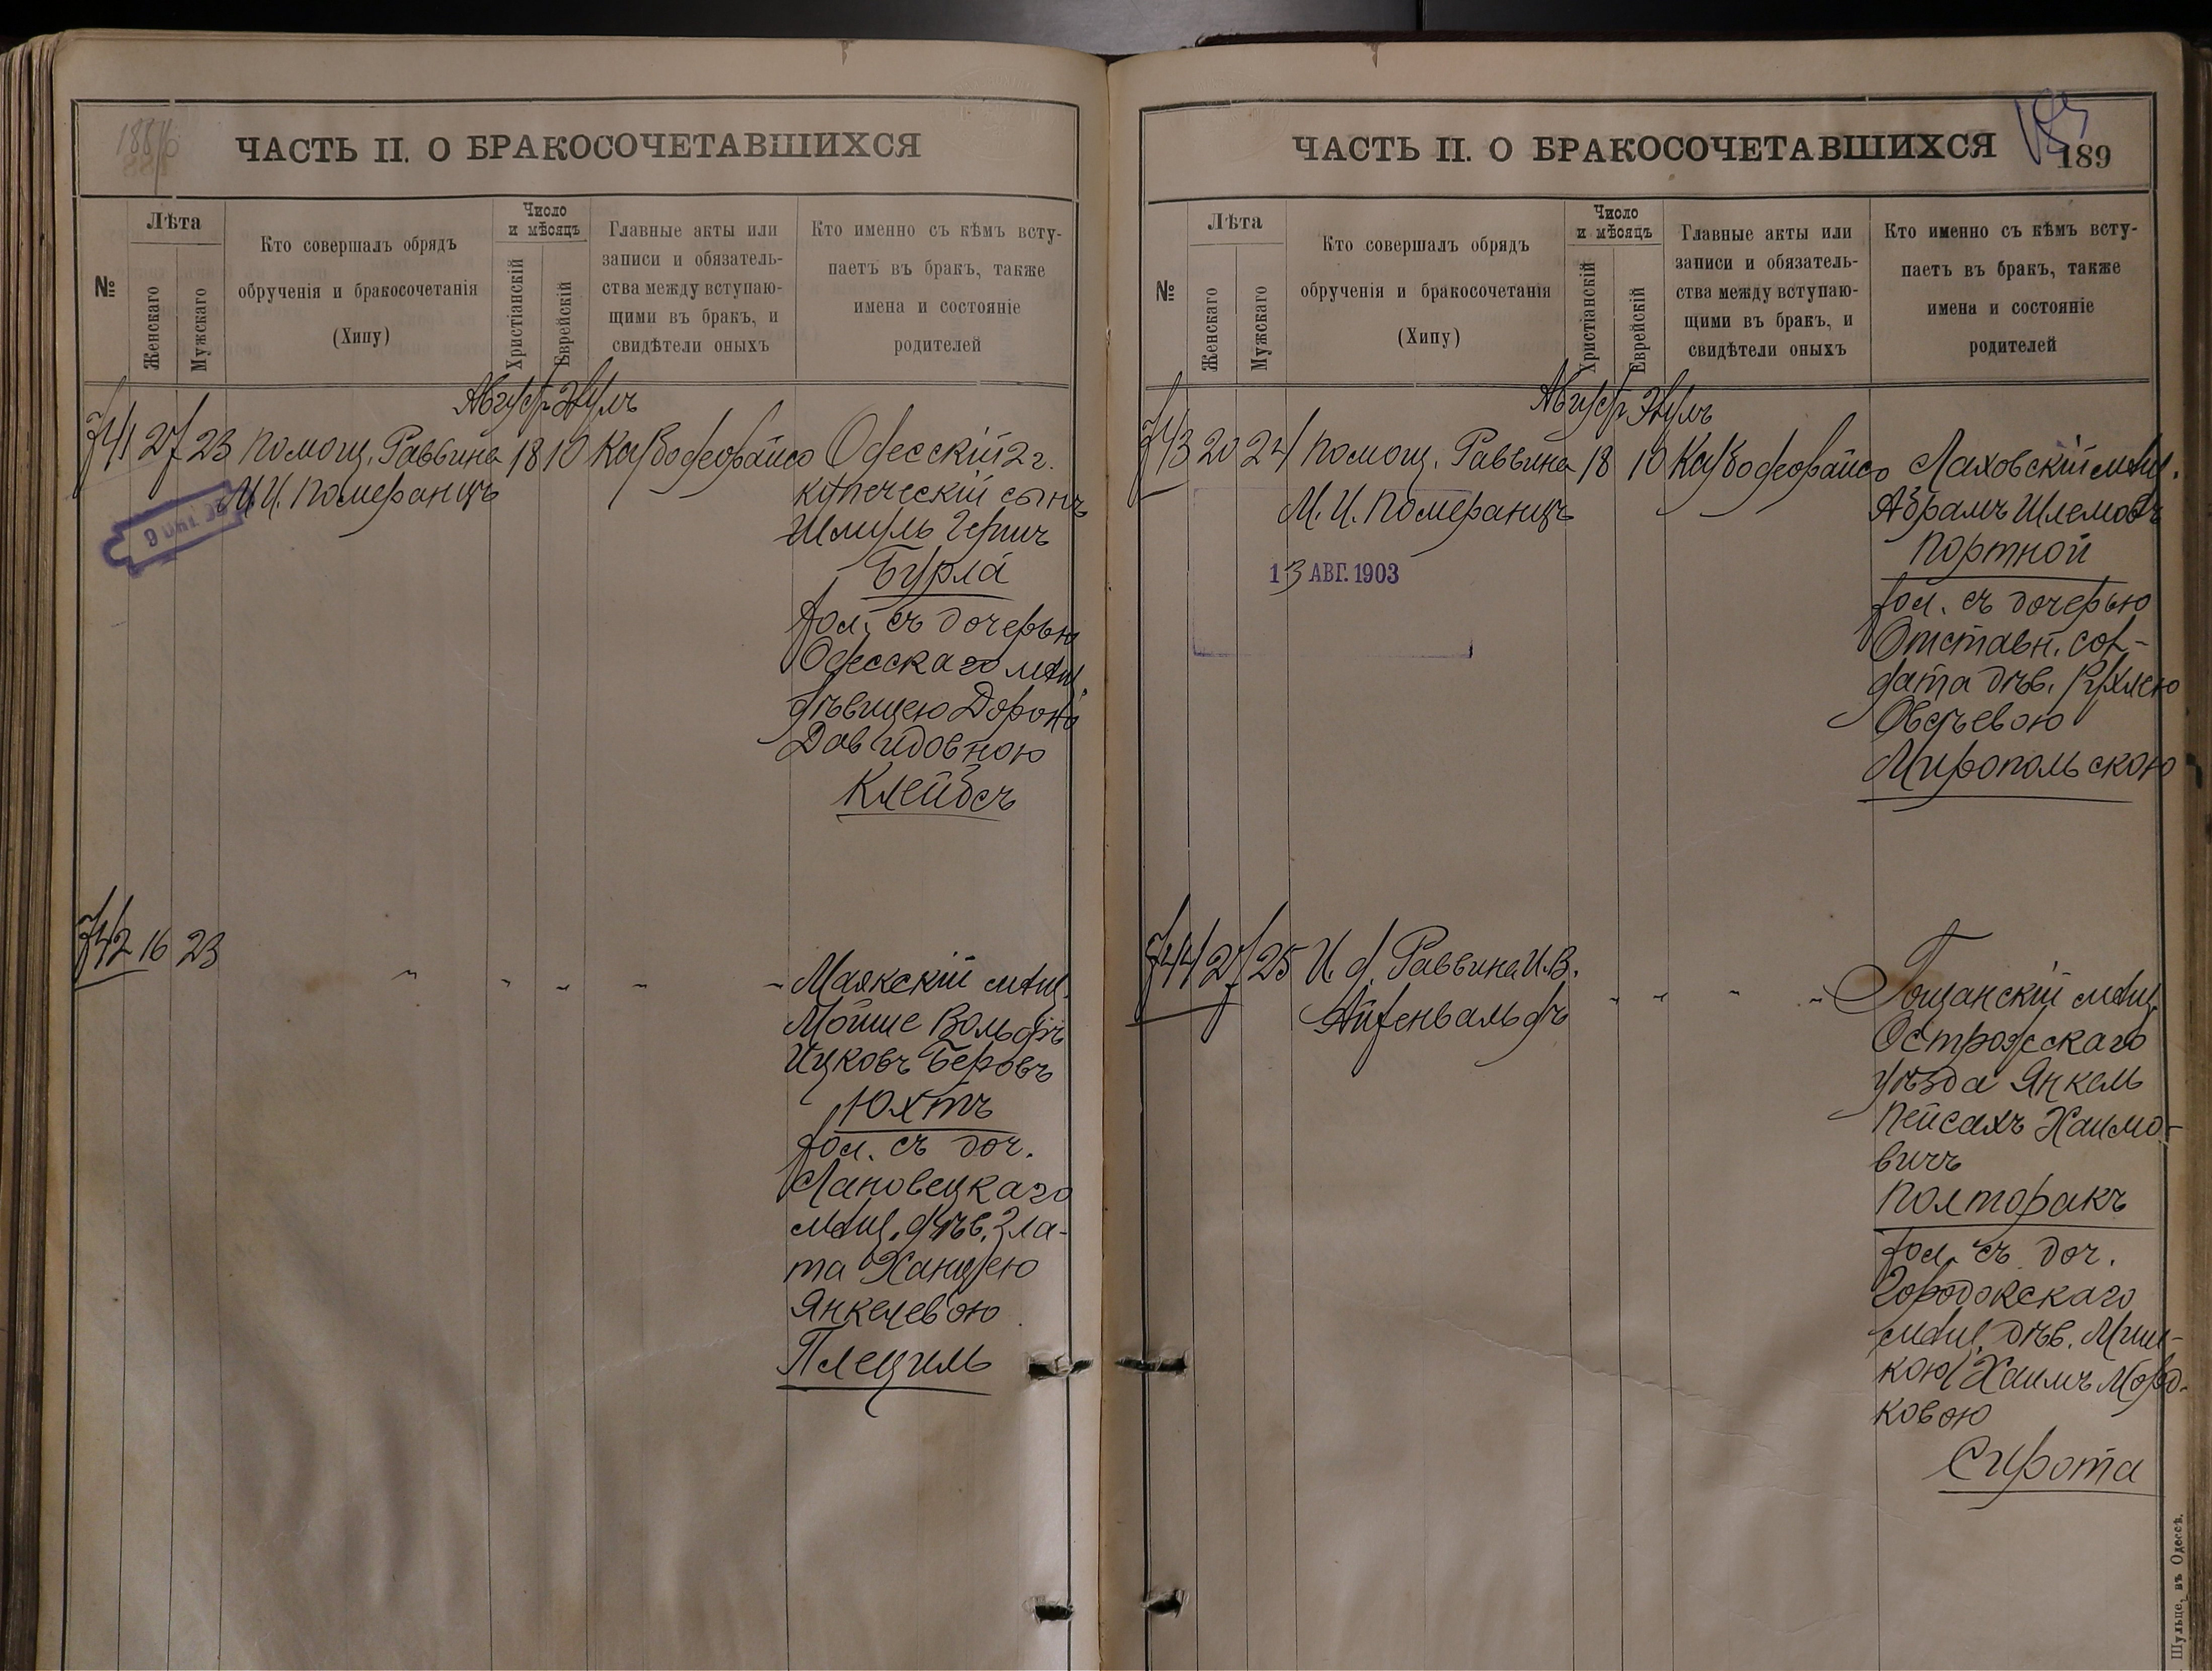 ЧАСТЬ II. О БРАКОСОЧЕТАВШИХСЯ
№
Лѣта
Женскаго
Мужскаго
Кто совершалъ обрядъ
обрученія и бракосочетанія
(Хипу)
Число
и мѣсяцъ
Христіанскій
Еврейскій
Главные акты или
записи и обязатель-
ства между вступаю-
щими въ бракъ, и
свидѣтели оныхъ
Кто именно съ кѣмъ всту-
паетъ въ бракъ, также
имена и состояніе
родителей
741 27 23 Помощ. Раввина 18 10 Одесскій 2 г.
М. И. Померанцъ
купеческій сынъ
Шмуль Герш
Бурла
хол. съ дочерью
Одесскаго мѣщ.
дѣвицею
Давидовною
742 16 23 " " " " "
Маякскій мѣщ.
Мойше Вольфъ
Ицковъ Беровъ
Юхтъ
хол. съ доч.
Лановецкаго
мѣщ. дѣв. Зла-
та
Янкелевою
Плециль
ЧАСТЬ II. О БРАКОСОЧЕТАВШИХСЯ
189
№
Лѣта
Женскаго
Мужскаго
Кто совершалъ обрядъ
обрученія и бракосочетанія
(Хипу)
Число
и мѣсяцъ
Христіанскій
Еврейскій
Главные акты или
записи и обязатель-
ства между вступаю-
щими въ бракъ, и
свидѣтели оныхъ
Кто именно съ кѣмъ всту-
паетъ въ бракъ, также
имена и состояніе
родителей
743 20 24 Помощ. Раввина 18 10 Ляховскій мѣщ.
М. И. Померанцъ
13 АВГ. 1903
Абрамъ Шлемовъ
Портной
хол. съ дочерью
Отставн. сол-
дата дѣв. Рухлею
Овсѣевою
Миропольскою
744 27 25 И. д. Раввина И. В.
Айзенвальдъ
" " " "
Гощанскій мѣщ.
Острожскаго
уѣзда Янкель
Пейсахъ Хаимо-
вичъ
Полторакъ
хол. съ доч.
Городокскаго
мѣщ. дѣв.
кою Хаимъ Морд-
ковою
Сирота
Шульце, въ Одессѣ.